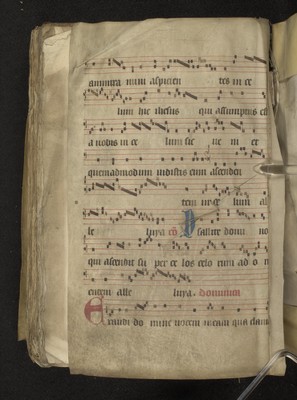 ammira mini aspicien tes in ce
lum hic ihesus qui assumptus est
a uobis in ce lum sic ue ni et
quemadmodum uidistis eum ascenden
tem in ce lum al
le luya co Psallite domi no
qui ascendit su per ce los celo rum ad o ri
entem alle luya. dominica
Exaudi do mine uocem meam qua clama